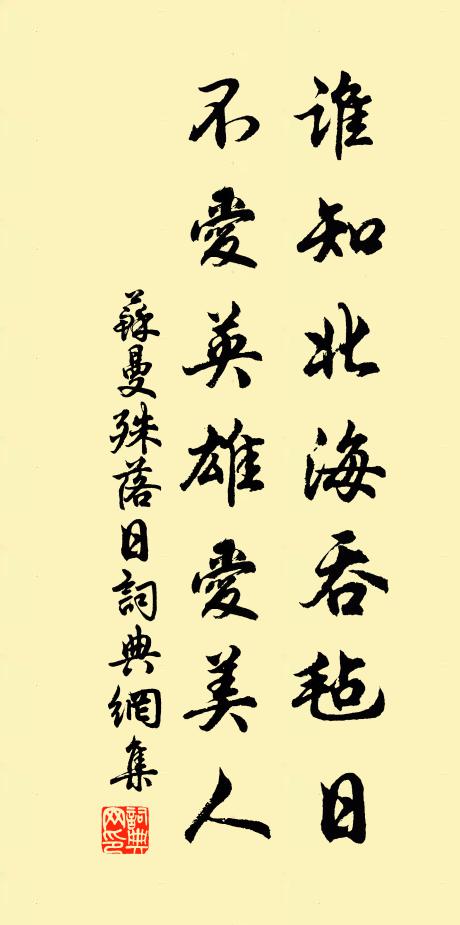 誰知北海吞毡日
不愛英雄愛美人
蘇曼殊落日詞典網集
詞典网印